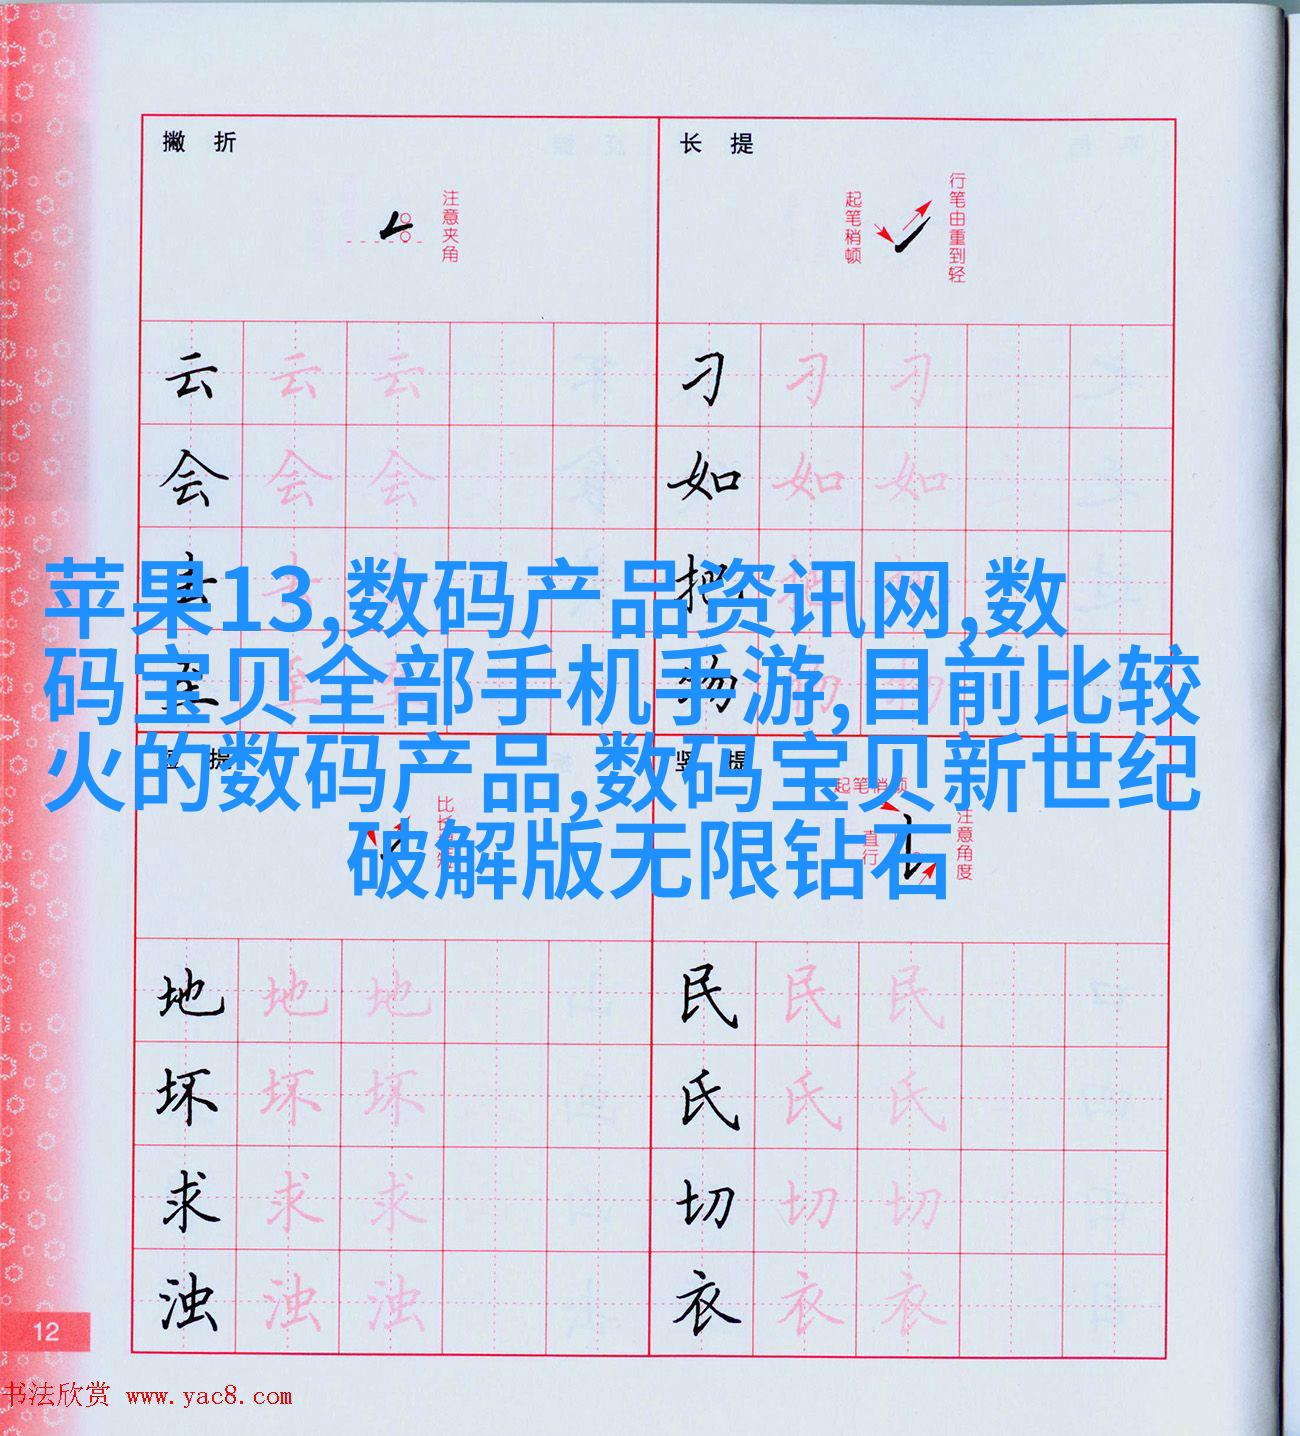 撇 折
注意夹角
长 提
起笔稍顿
行笔由重到轻
云 云 云
会 会 会
去
至 至 至
刁 刁 刁
如 如 如
把 把 把
物 物 物
苹果13,数码产品资讯网,数
码宝贝全部手机手游,目前比较
火的数码产品,数码宝贝新世纪
破解版无限钻石
提
竖 提
起笔稍顿
直行
注意角度
地 地 地
坏 坏 坏
求 求 求
浊 浊 浊
民 民 民
氏 氏 氏
切 切 切
衣 衣 衣
12
书法欣赏 www.yac8.com